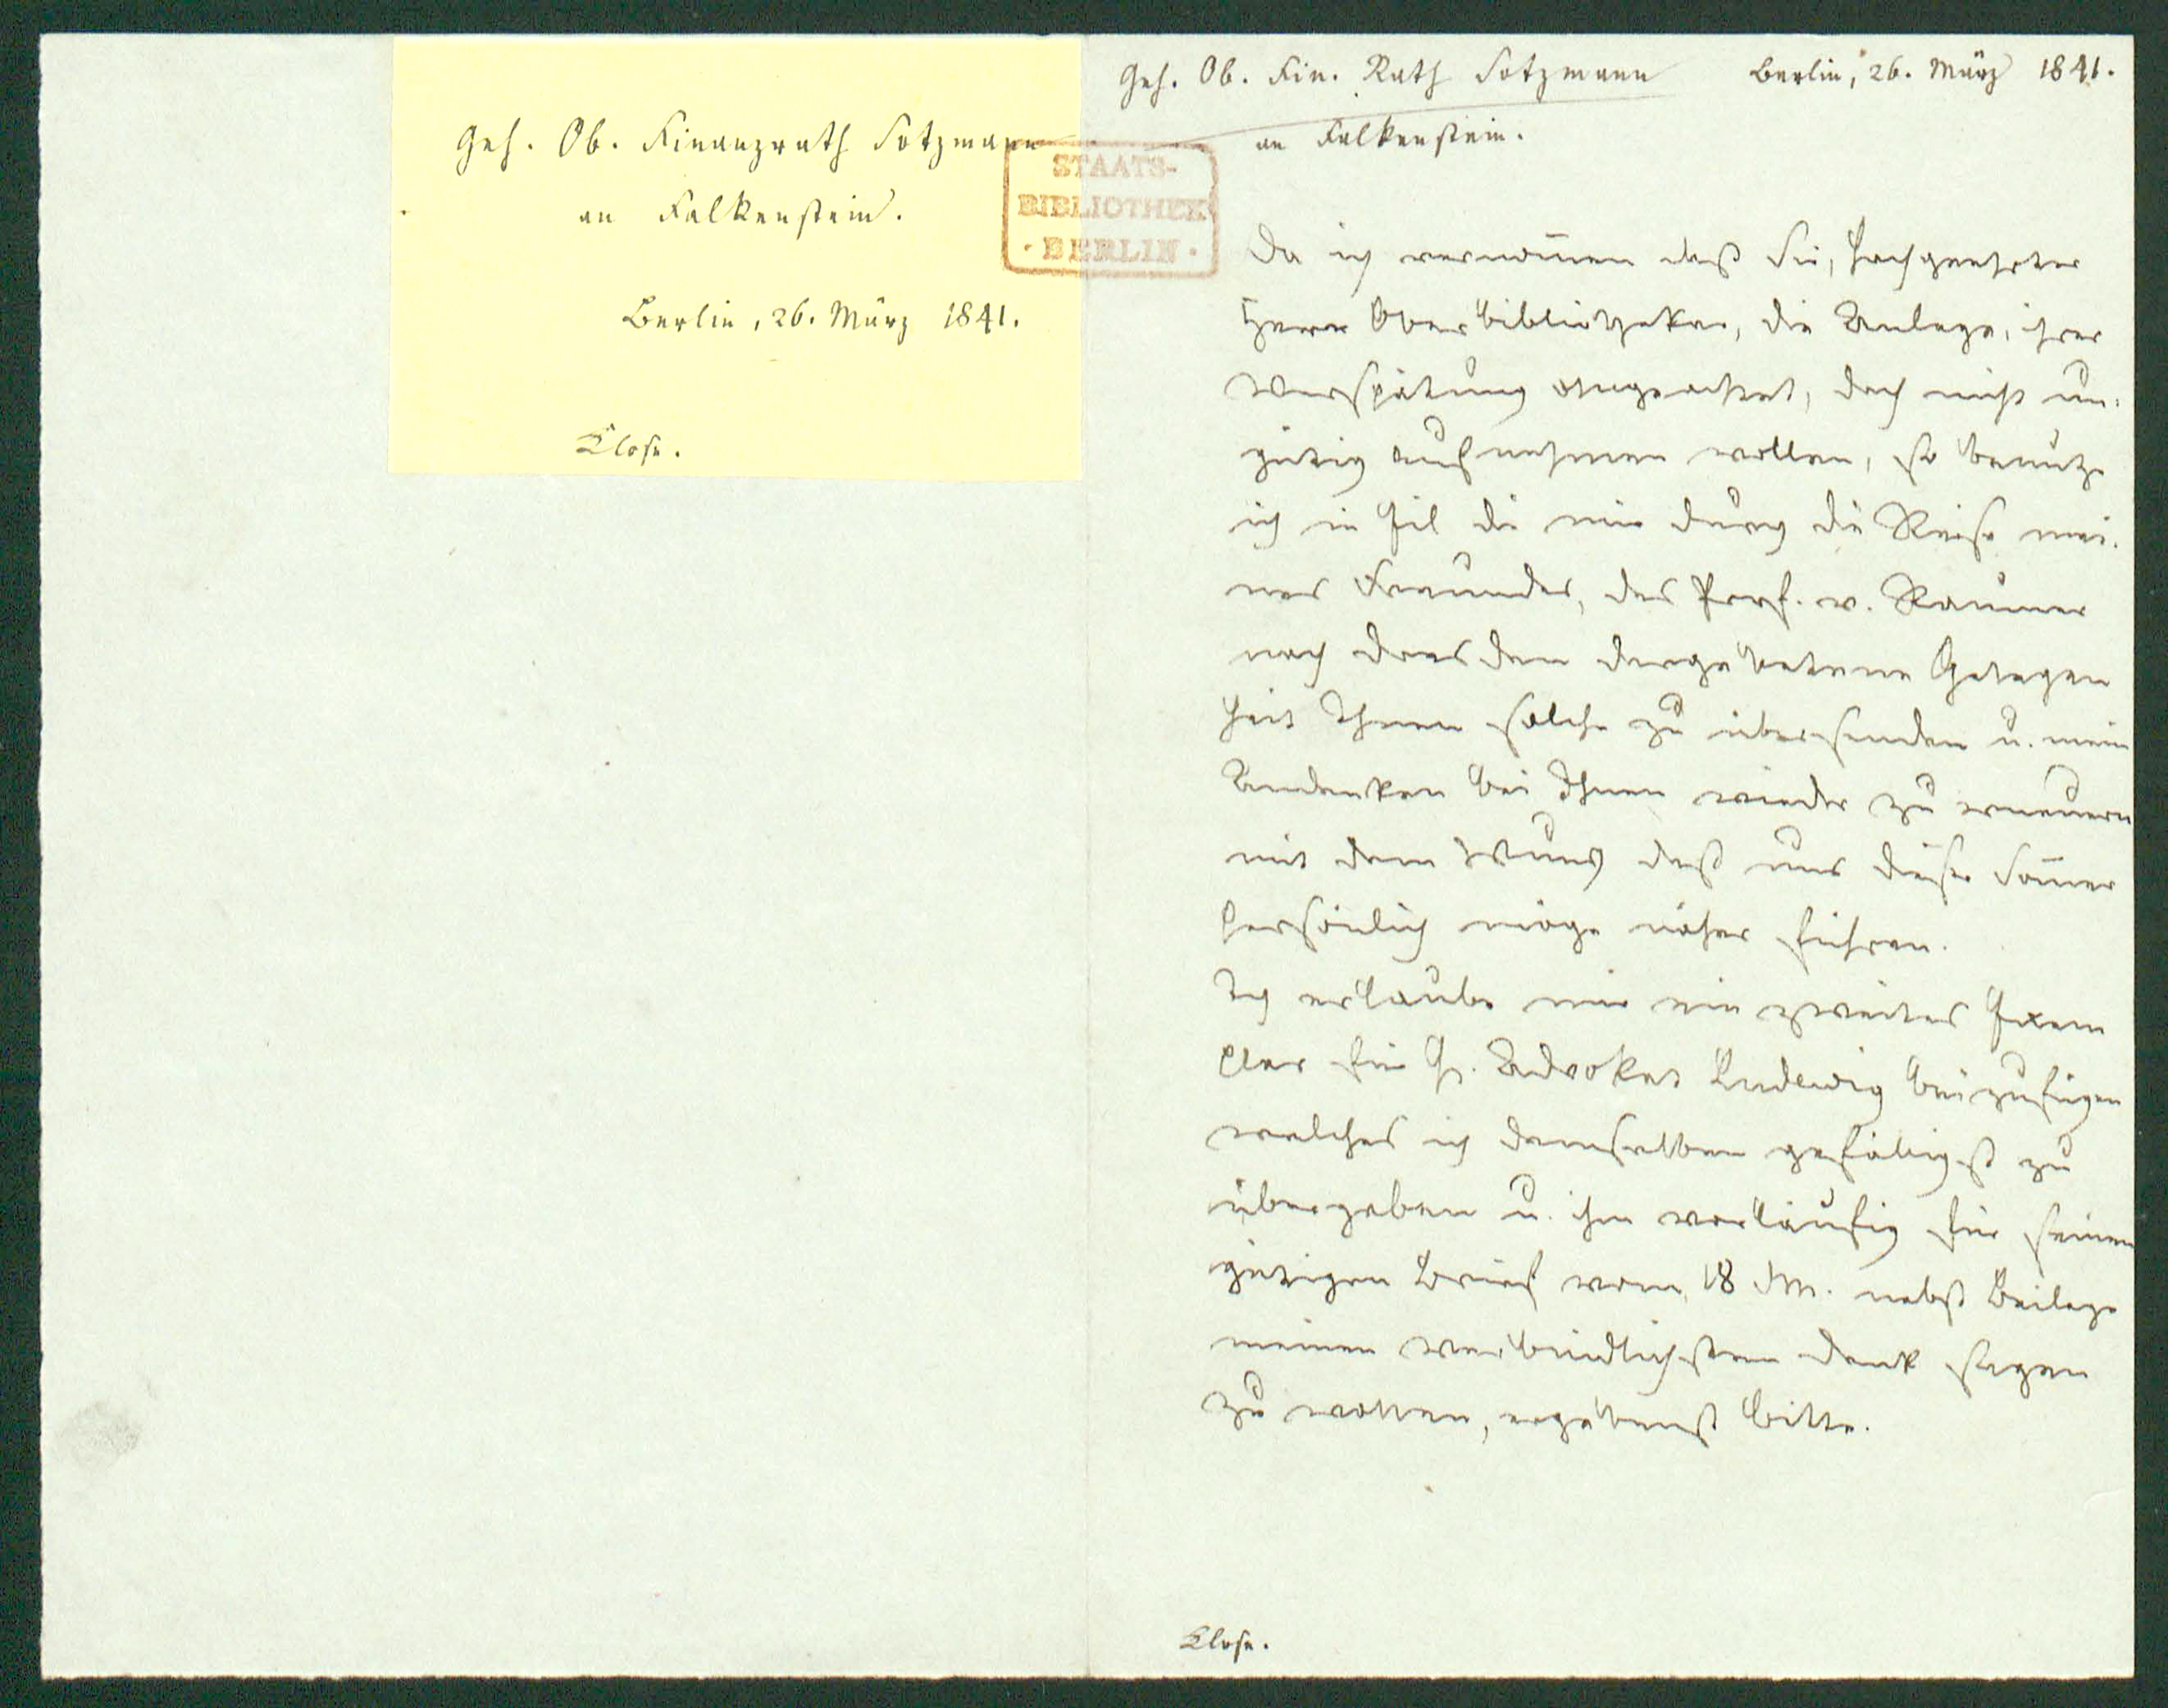 Geh. Ob. Finanzrath Sotzmann
an Falkenstein.
Berlin, 26. März 1841.
Close.
STAATS-
BIBLIOTHEK
· BERLIN ·
Geh. Ob. Fin. Rath Sotzmann Berlin, 26. März 1841.
an Falkenstein.
Da ich vernom̄en daß Sie, hochgeehrter
Herr Oberbibliothekar, die Anlage, ihrer
Verspätung ohngeachtet, doch nicht un-
gütig aufnehmen wollen, so benutze
ich in Eil die mir durch die Reise mei-
nes Freundes, des Prof. v. Raumer
nach Dresden dargebotene Gelegen
heit Ihnen solche zu übersenden u. mein
Andenken bei Ihnen wieder zu erneuern
mit dem Wunsch daß uns dieser Som̄er
persönlich möge näher führen.
Ich erlaube mir ein zweites Exem
plar für H. Advokat Ludewig beizufügen
welches ich demselben gefälligst zu
übergeben u. ihm vorläufig für seinen
gütigen Brief vom 18 d M. nebst Beilage
meinen verbindlichsten Dank sagen
zu wollen, ergebenst bitte.
Close.